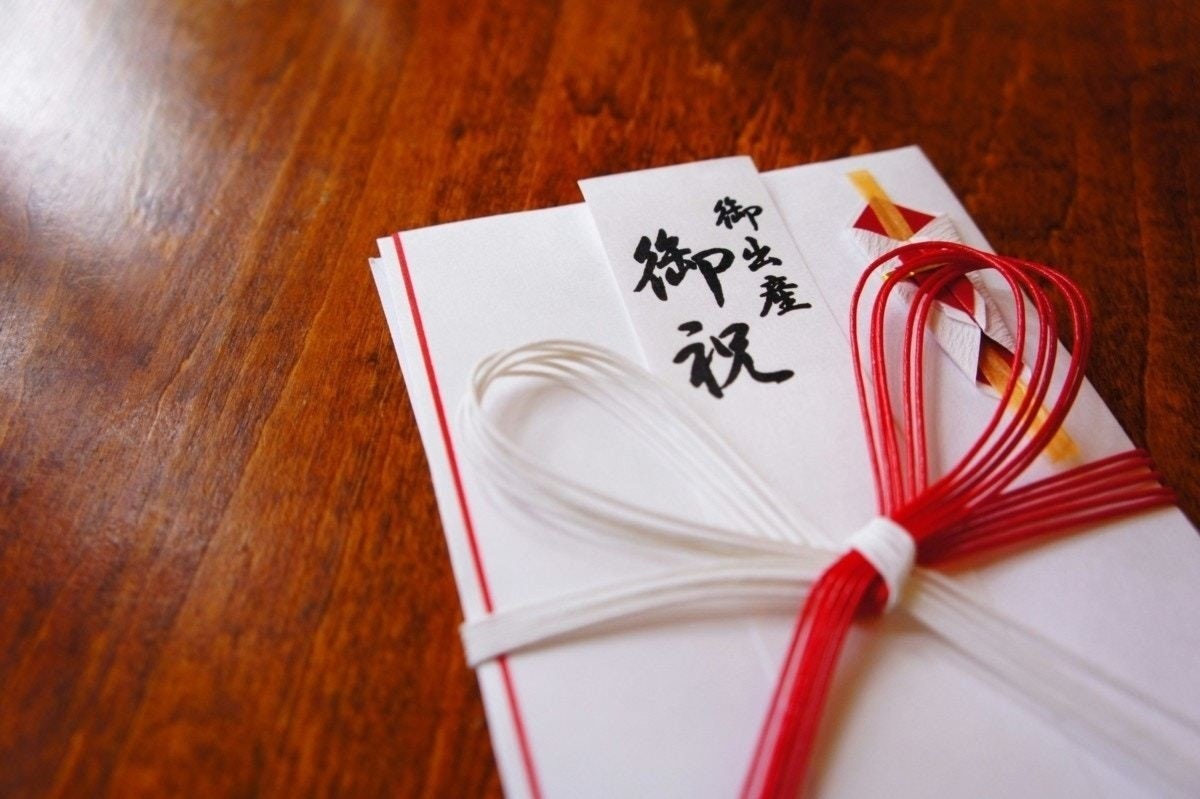 御出産
御祝